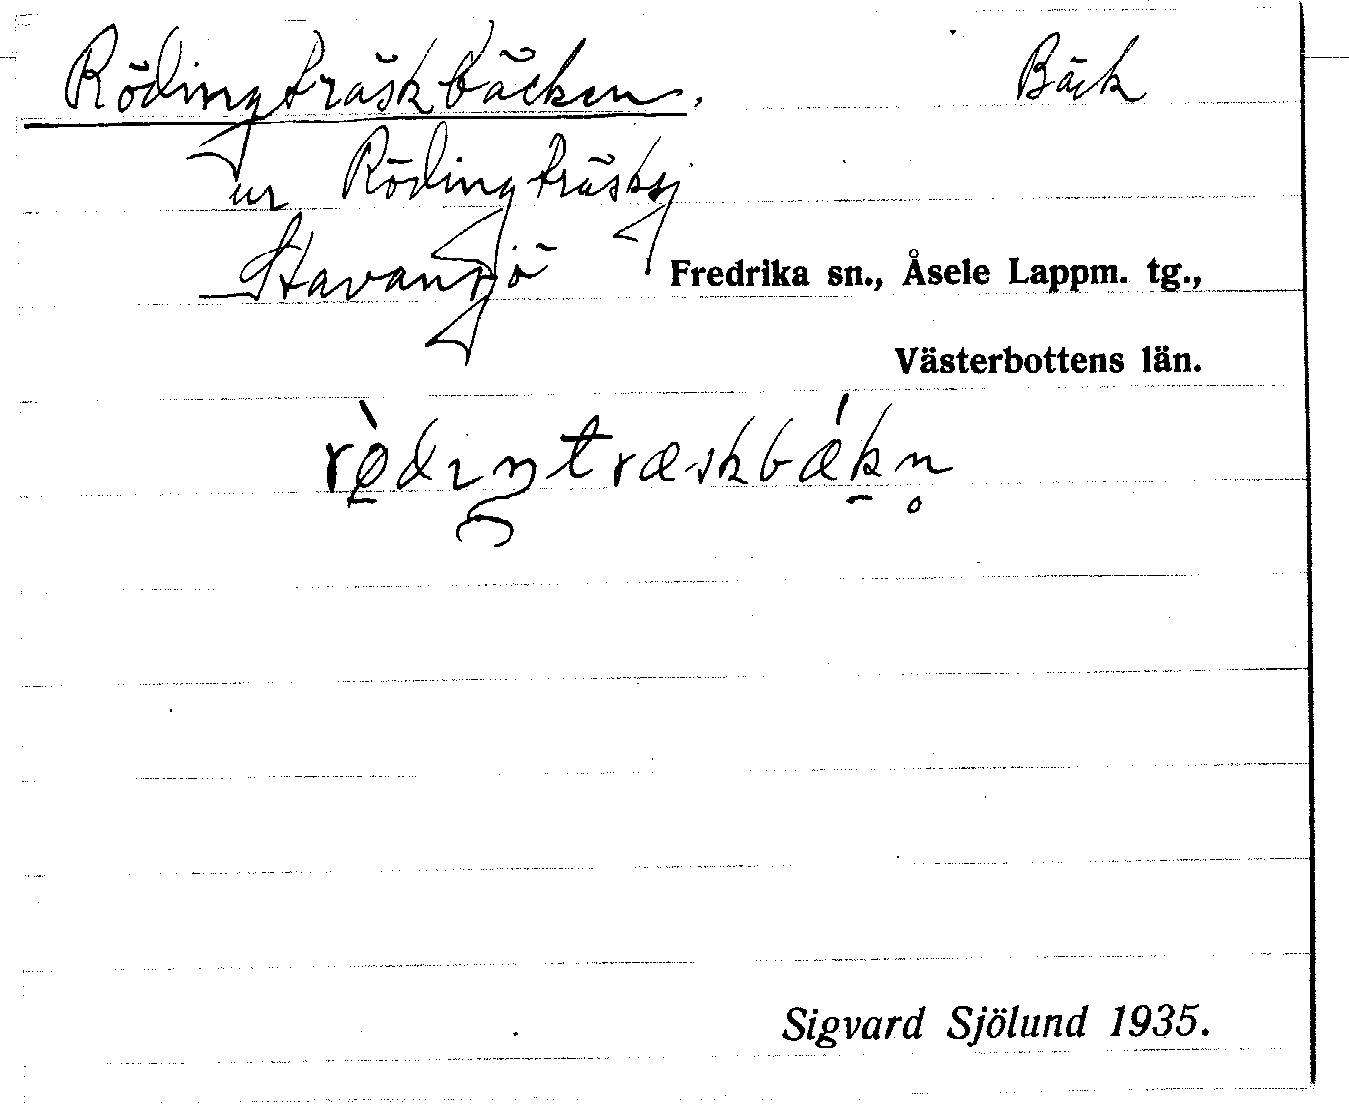 Rödingträskbäcken. Bäck
ur Rödingträsksj
Stavansjö Fredrika sn., Åsele Lappm. tg.,
Västerbottens län.
rø̀dıŋtræskbǽkn̥
Sigvard Sjölund 1935.